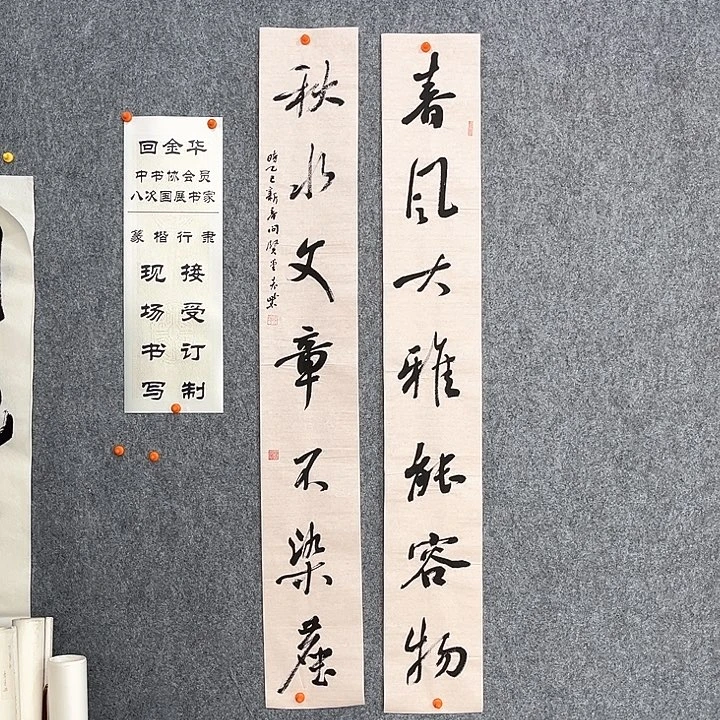 春风大雅能容物
秋水文章不染尘
时乙巳新春
回金华
中书协会员
八次国展书家
篆楷行隶
接受订制
现场书写